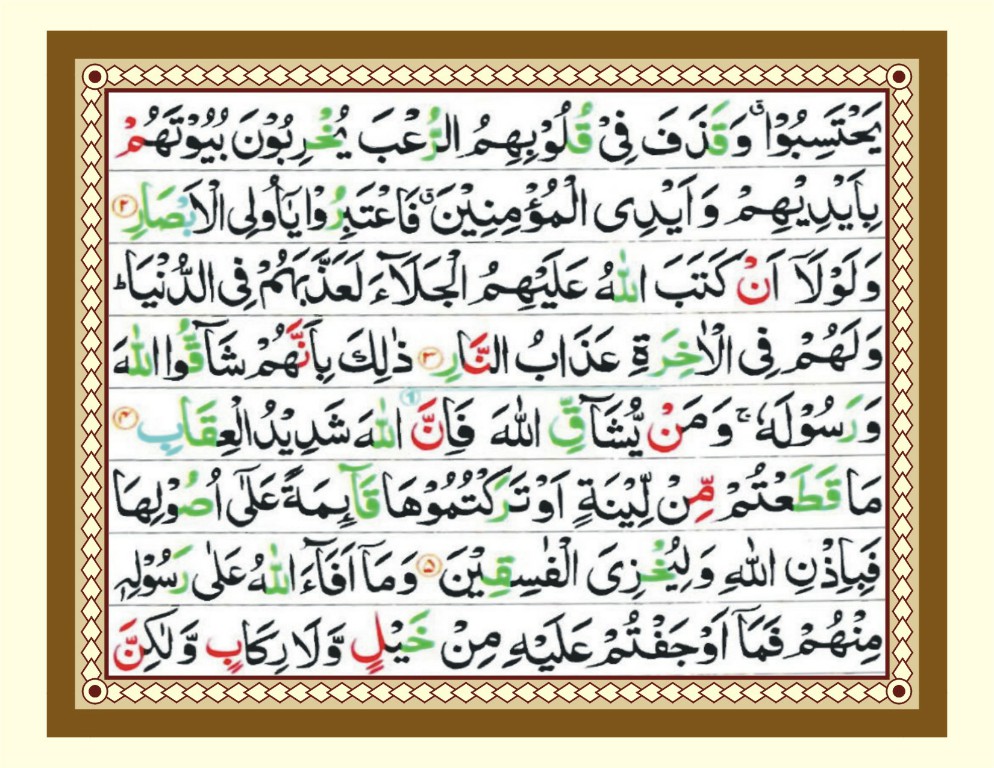 يَحْتَسِبُوْا ۗ وَقَذَفَ فِىْ قُلُوْبِهِمُ الرُّعْبَ يُخْرِبُوْنَ بُيُوْتَهُمْ
بِاَيْدِيْهِمْ وَاَيْدِى الْمُؤْمِنِيْنَ ۗ فَاعْتَبِرُوْا يٰۤاُولِى الْاَبْصَارِ ۲
وَلَوْلَاۤ اَنْ كَتَبَ اللّٰهُ عَلَيْهِمُ الْجَلَآءَ لَعَذَّبَهُمْ فِى الدُّنْيَا ؕ
وَلَهُمْ فِى الْاٰخِرَةِ عَذَابُ النَّارِ ۳ ذٰلِكَ بِاَنَّهُمْ شَآقُّوا اللّٰهَ
وَرَسُوْلَهٗ ۚ وَمَنْ يُّشَآقِّ اللّٰهَ فَاِنَّ اللّٰهَ شَدِيْدُ الْعِقَابِ ۴
مَا قَطَعْتُمْ مِّنْ لِّيْنَةٍ اَوْ تَرَكْتُمُوْهَا قَآئِمَةً عَلٰۤى اُصُوْلِهَا
فَبِاِذْنِ اللّٰهِ وَلِيُخْزِىَ الْفٰسِقِيْنَ ۵ وَمَاۤ اَفَآءَ اللّٰهُ عَلٰى رَسُوْلِهٖ
مِنْهُمْ فَمَاۤ اَوْجَفْتُمْ عَلَيْهِ مِنْ خَيْلٍ وَّلَا رِكَابٍ وَّلٰكِنَّ